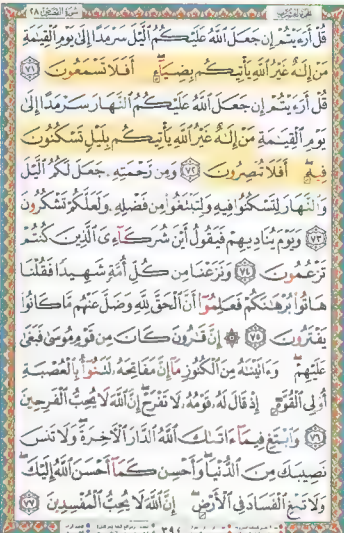 سورة القصص ٢٨
قُلْ أَرَءَيْتُمْ إِن جَعَلَ ٱللَّهُ عَلَيْكُمُ ٱلَّيْلَ سَرْمَدًا إِلَىٰ يَوْمِ ٱلْقِيَٰمَةِ
مَنْ إِلَٰهٌ غَيْرُ ٱللَّهِ يَأْتِيكُم بِضِيَآءٍ أَفَلَا تَسْمَعُونَ ٧١
قُلْ أَرَءَيْتُمْ إِن جَعَلَ ٱللَّهُ عَلَيْكُمُ ٱلنَّهَارَ سَرْمَدًا إِلَىٰ
يَوْمِ ٱلْقِيَٰمَةِ مَنْ إِلَٰهٌ غَيْرُ ٱللَّهِ يَأْتِيكُم بِلَيْلٍ تَسْكُنُونَ
فِيهِ أَفَلَا تُبْصِرُونَ ٧٢ وَمِن رَّحْمَتِهِۦ جَعَلَ لَكُمُ ٱلَّيْلَ
وَٱلنَّهَارَ لِتَسْكُنُوا۟ فِيهِ وَلِتَبْتَغُوا۟ مِن فَضْلِهِۦ وَلَعَلَّكُمْ تَشْكُرُونَ
٧٣ وَيَوْمَ يُنَادِيهِمْ فَيَقُولُ أَيْنَ شُرَكَآءِىَ ٱلَّذِينَ كُنتُمْ
تَزْعُمُونَ ٧٤ وَنَزَعْنَا مِن كُلِّ أُمَّةٍ شَهِيدًا فَقُلْنَا
هَاتُوا۟ بُرْهَٰنَكُمْ فَعَلِمُوٓا۟ أَنَّ ٱلْحَقَّ لِلَّهِ وَضَلَّ عَنْهُم مَّا كَانُوا۟
يَفْتَرُونَ ٧٥ ۞ إِنَّ قَٰرُونَ كَانَ مِن قَوْمِ مُوسَىٰ فَبَغَىٰ
عَلَيْهِمْ وَءَاتَيْنَٰهُ مِنَ ٱلْكُنُوزِ مَآ إِنَّ مَفَاتِحَهُۥ لَتَنُوٓأُ بِٱلْعُصْبَةِ
أُو۟لِى ٱلْقُوَّةِ إِذْ قَالَ لَهُۥ قَوْمُهُۥ لَا تَفْرَحْ إِنَّ ٱللَّهَ لَا يُحِبُّ ٱلْفَرِحِينَ
٧٦ وَٱبْتَغِ فِيمَآ ءَاتَىٰكَ ٱللَّهُ ٱلدَّارَ ٱلْءَاخِرَةَ وَلَا تَنسَ
نَصِيبَكَ مِنَ ٱلدُّنْيَا وَأَحْسِن كَمَآ أَحْسَنَ ٱللَّهُ إِلَيْكَ
وَلَا تَبْغِ ٱلْفَسَادَ فِى ٱلْأَرْضِ إِنَّ ٱللَّهَ لَا يُحِبُّ ٱلْمُفْسِدِينَ ٧٧
٣٩٤